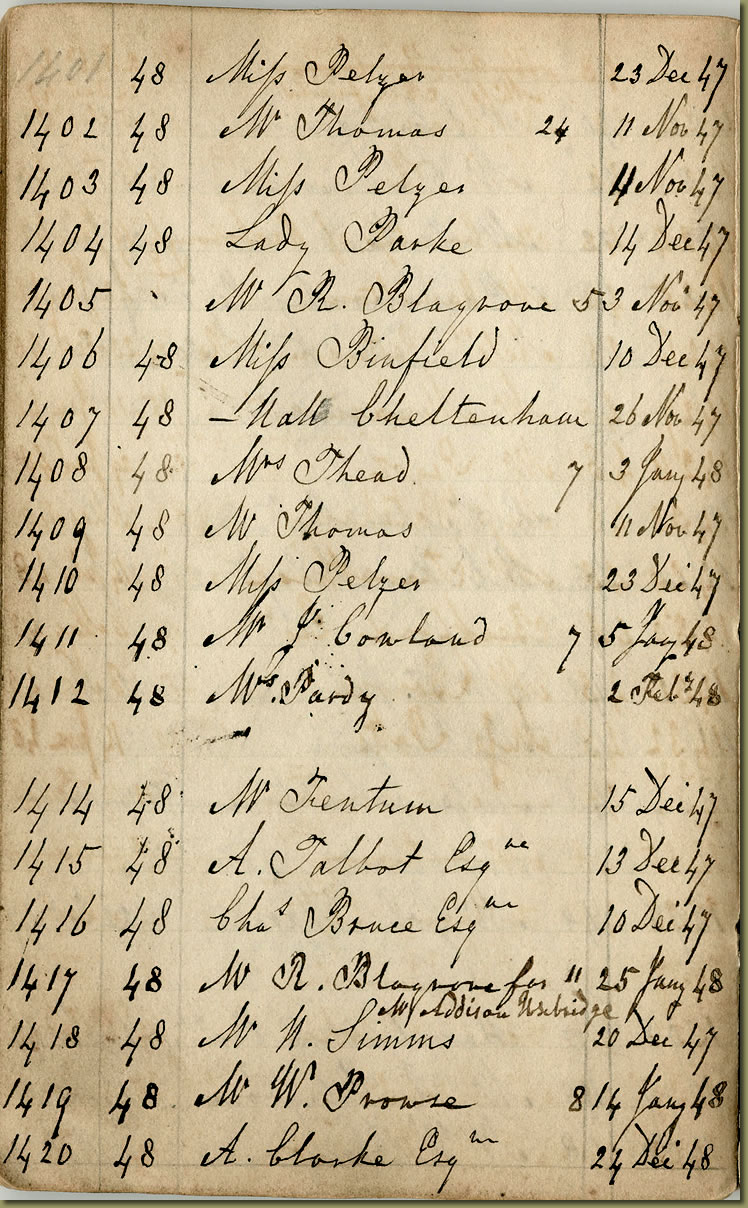 1401 48 Miss Pelzer 23 Dec 47
1402 48 Mr Thomas 24 11 Nov 47
1403 48 Miss Pelzer 4 Nov 47
1404 48 Lady Parke 14 Dec 47
1405 Mr R. Blagrove 5 3 Nov 47
1406 48 Miss Binfield 10 Dec 47
1407 48 – Hall Cheltenham 26 Nov 47
1408 48 Mrs Thead 7 3 Jany 48
1409 48 Mr Thomas 11 Nov 47
1410 48 Miss Pelzer 23 Dec 47
1411 48 Mr J Cowland 7 5 Jany 48
1412 48 Mrs. Pardy 2 Feby 48
1414 48 Mr Fentum 15 Dec 47
1415 48 A. Talbot Esqre 13 Dec 47
1416 48 Chas Bruce Esqre 10 Dec 47
1417 48 Mr R. Blagrove for 11 25 Jany 48
Mr Addison Uxbridge
1418 48 Mr N. Simms 20 Dec 47
1419 48 Mr W. Prowse 8 14 Jany 48
1420 48 A. Clarke Esqre 24 Dec 48